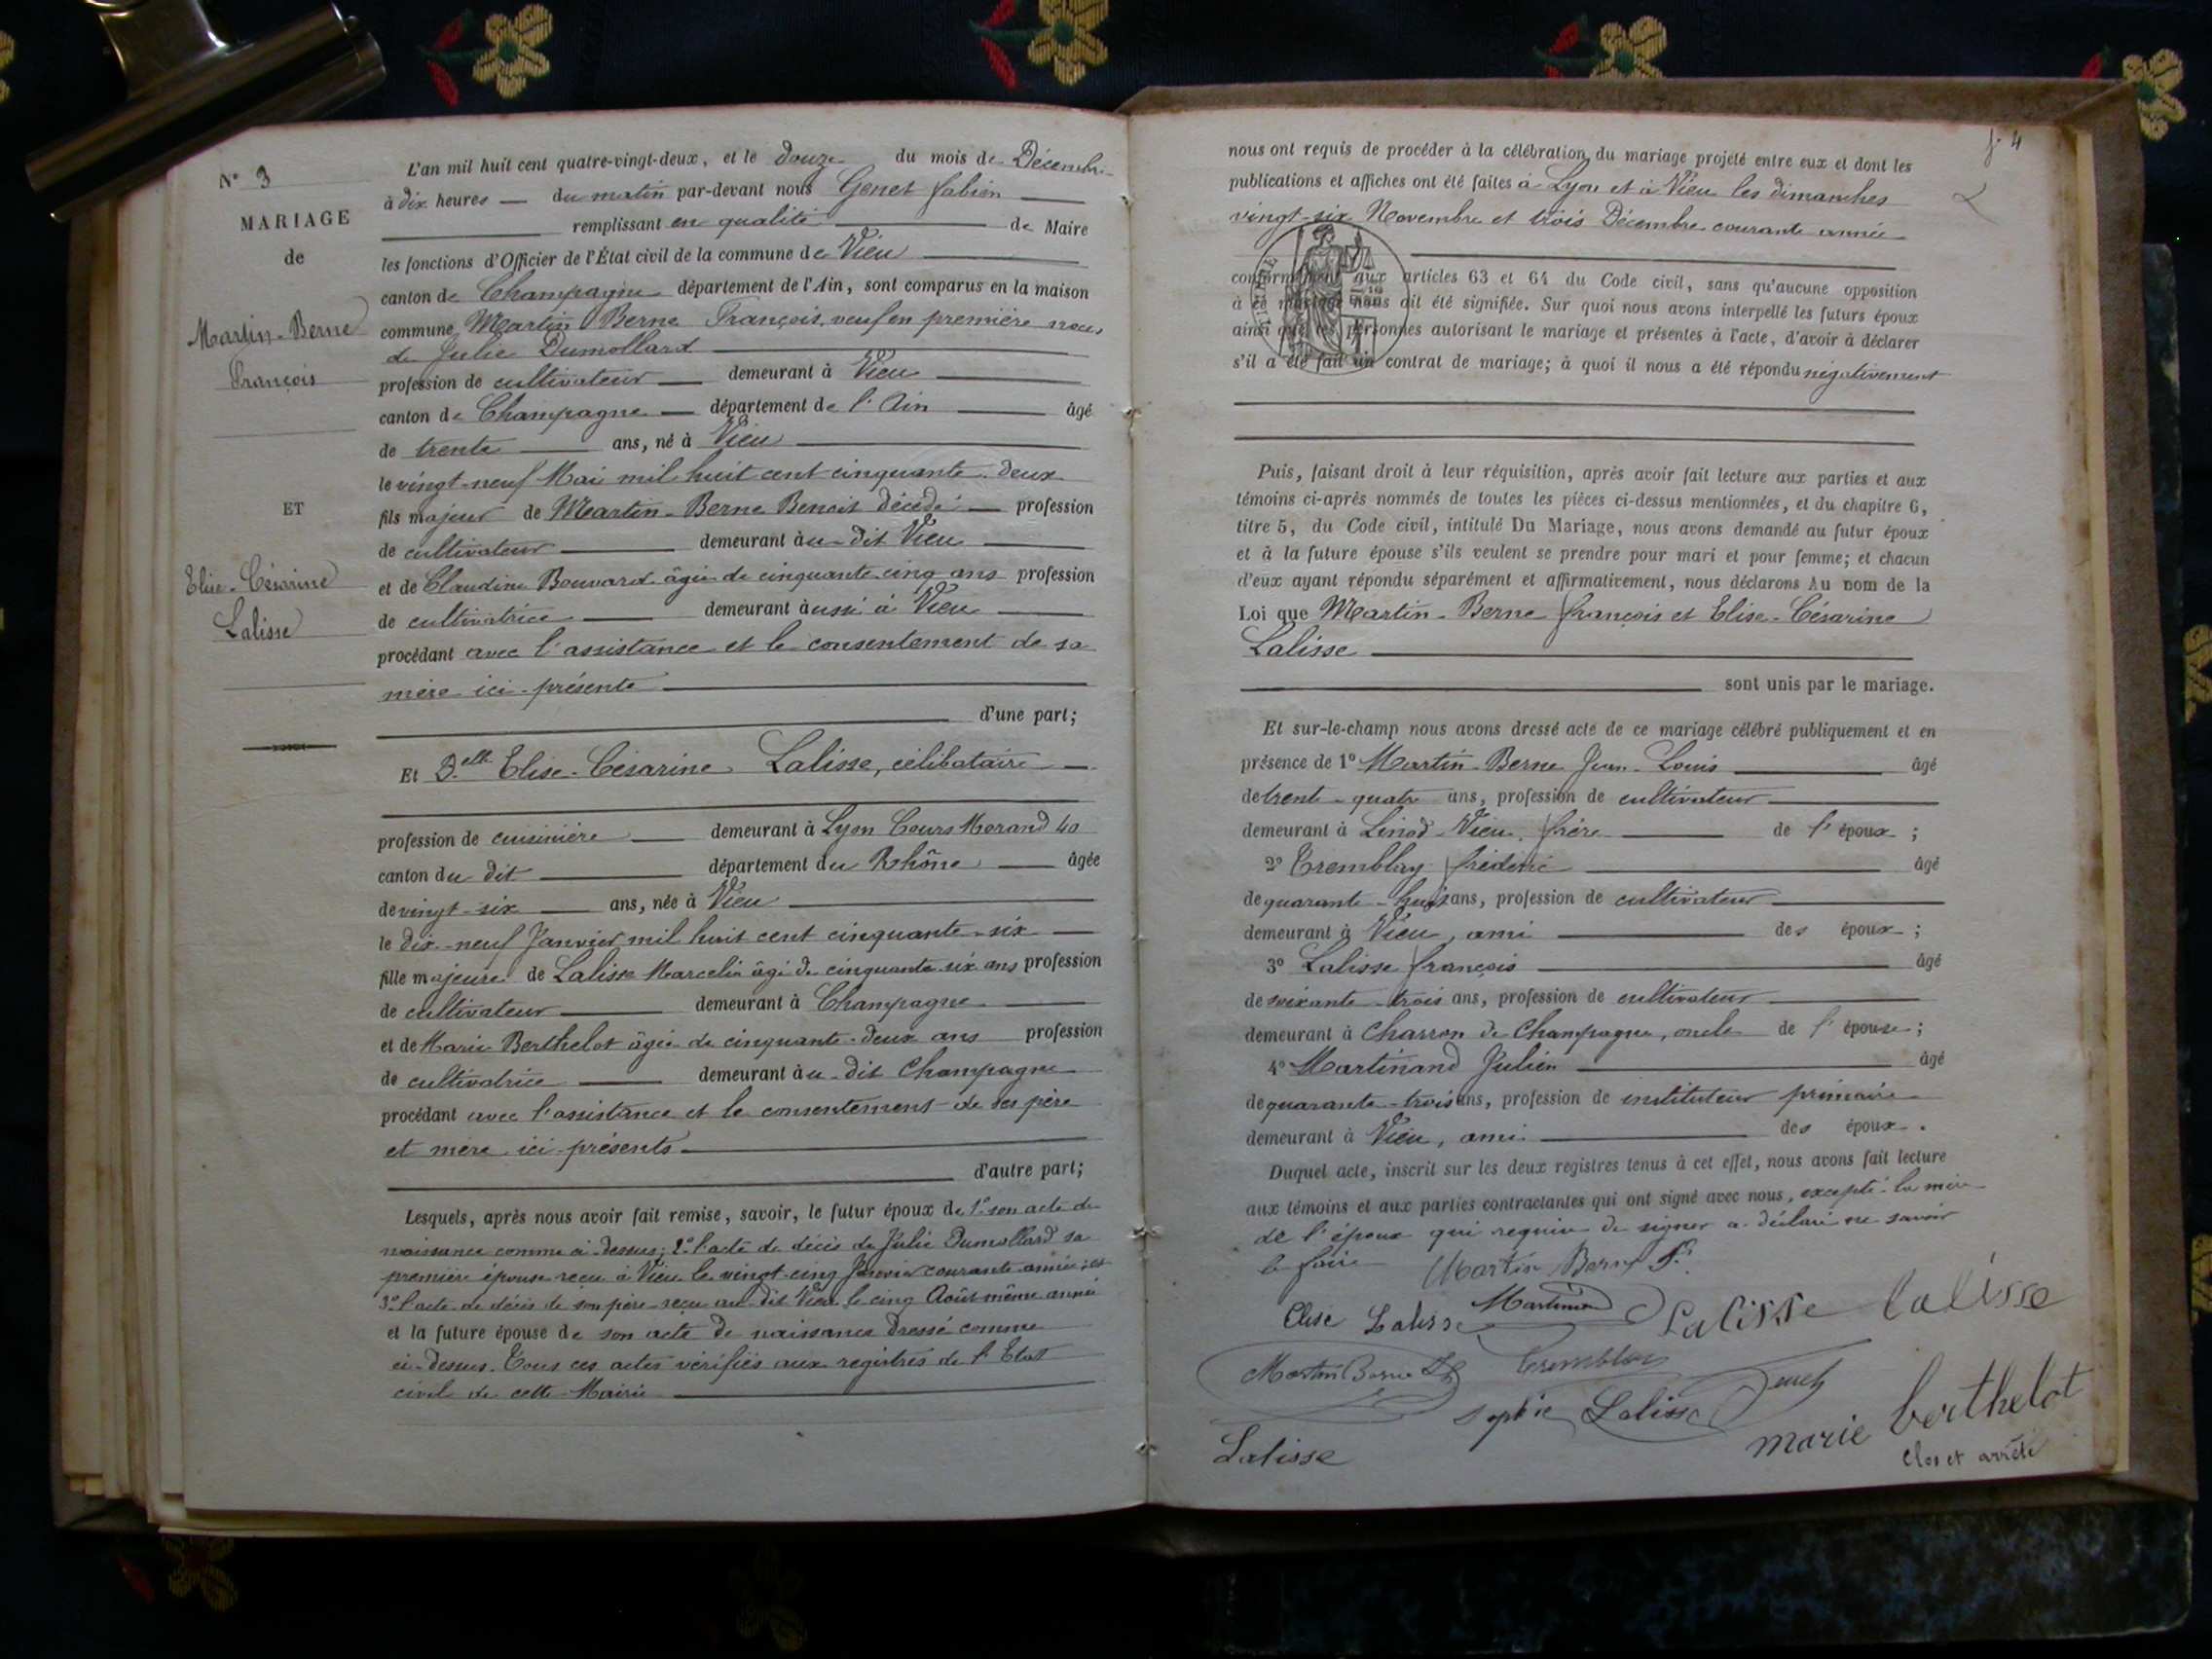 N° 3
MARIAGE
de
Martin-Berne
François
ET
Elise-Césarine
Lalisse
L'an mil huit cent quatre-vingt-deux, et le douze du mois de Décembre
à dix heures du matin par-devant nous Genet fabien
remplissant en qualité de Maire
les fonctions d'Officier de l'État civil de la commune de Vieu
canton de Champagne département de l'Ain, sont comparus en la maison
commune Martin Berne François, veuf en première noces
de Julie Dumollard
profession de cultivateur demeurant à Vieu
canton de Champagne département de l'Ain âgé
de trente ans, né à Vieu
le vingt-neuf Mai mil huit cent cinquante-deux
fils majeur de Martin-Berne Benoit décédé profession
de cultivateur demeurant au-dit Vieu
et de Claudine Bouvard âgée de cinquante cinq ans profession
de cultivatrice demeurant aussi à Vieu
procédant avec l'assistance et le consentement de sa
mère ici-présente
d'une part;
Et D.elle Elise-Césarine Lalisse, célibataire
profession de cuisinière demeurant à Lyon Cours Morand 40
canton du dit département du Rhône âgée
de vingt-six ans, née à Vieu
le dix-neuf Janvier mil huit cent cinquante-six
fille majeure de Lalisse Marcelin âgé de cinquante-six ans profession
de cultivateur demeurant à Champagne
et de Marie Berthelot âgée de cinquante-deux ans profession
de cultivatrice demeurant au-dit Champagne
procédant avec l'assistance et le consentement de ses père
et mère ici-présents
d'autre part;
Lesquels, après nous avoir fait remise, savoir, le futur époux de 1° son acte de
naissance comme ci-dessus; 2° l'acte de décès de Julie Dumollard sa
première épouse reçu à Vieu le vingt-cinq Janvier courante année; et
3° l'acte de décès de son père reçu au-dit Vieu le cinq Août même année
et la future épouse de son acte de naissance dressé comme
ci-dessus. Tous ces actes vérifiés aux registres de l'Etat
civil de cette Mairie
f. 4
nous ont requis de procéder à la célébration du mariage projeté entre eux et dont les
publications et affiches ont été faites à Lyon et à Vieu les dimanches
vingt-six Novembre et trois Décembre courante année
conformément aux articles 63 et 64 du Code civil, sans qu'aucune opposition
à ce mariage nous ait été signifiée. Sur quoi nous avons interpellé les futurs époux
ainsi que les personnes autorisant le mariage et présentes à l'acte, d'avoir à déclarer
s'il a été fait un contrat de mariage; à quoi il nous a été répondu négativement
Puis, faisant droit à leur réquisition, après avoir fait lecture aux parties et aux
témoins ci-après nommés de toutes les pièces ci-dessus mentionnées, et du chapitre 6,
titre 5, du Code civil, intitulé Du Mariage, nous avons demandé au futur époux
et à la future épouse s'ils veulent se prendre pour mari et pour femme; et chacun
d'eux ayant répondu séparément et affirmativement, nous déclarons Au nom de la
Loi que Martin-Berne françois et Elise-Césarine
Lalisse
sont unis par le mariage.
Et sur-le-champ nous avons dressé acte de ce mariage célébré publiquement et en
présence de 1° Martin-Berne Jean-Louis âgé
de trente-quatre ans, profession de cultivateur
demeurant à Linod-Vieu, frère de l'époux;
2° Tremblay frédéric âgé
de quarante-huit ans, profession de cultivateur
demeurant à Vieu, ami des époux;
3° Lalisse françois âgé
de soixante-trois ans, profession de cultivateur
demeurant à Charron de Champagne, oncle de l'épouse;
4° Martinand Julien âgé
de quarante-trois ans, profession de instituteur primaire
demeurant à Vieu, ami des époux.
Duquel acte, inscrit sur les deux registres tenus à cet effet, nous avons fait lecture
aux témoins et aux parties contractantes qui ont signé avec nous, excepté la mère
de l'époux qui requise de signer a déclaré ne savoir
le faire Martin Berne F.
Elise Lalisse Martinand Lalisse lalisse
Martin Berne Tremblay
Sophie Lalisse Genet
Lalisse marie berthelot
Clos et arrêté